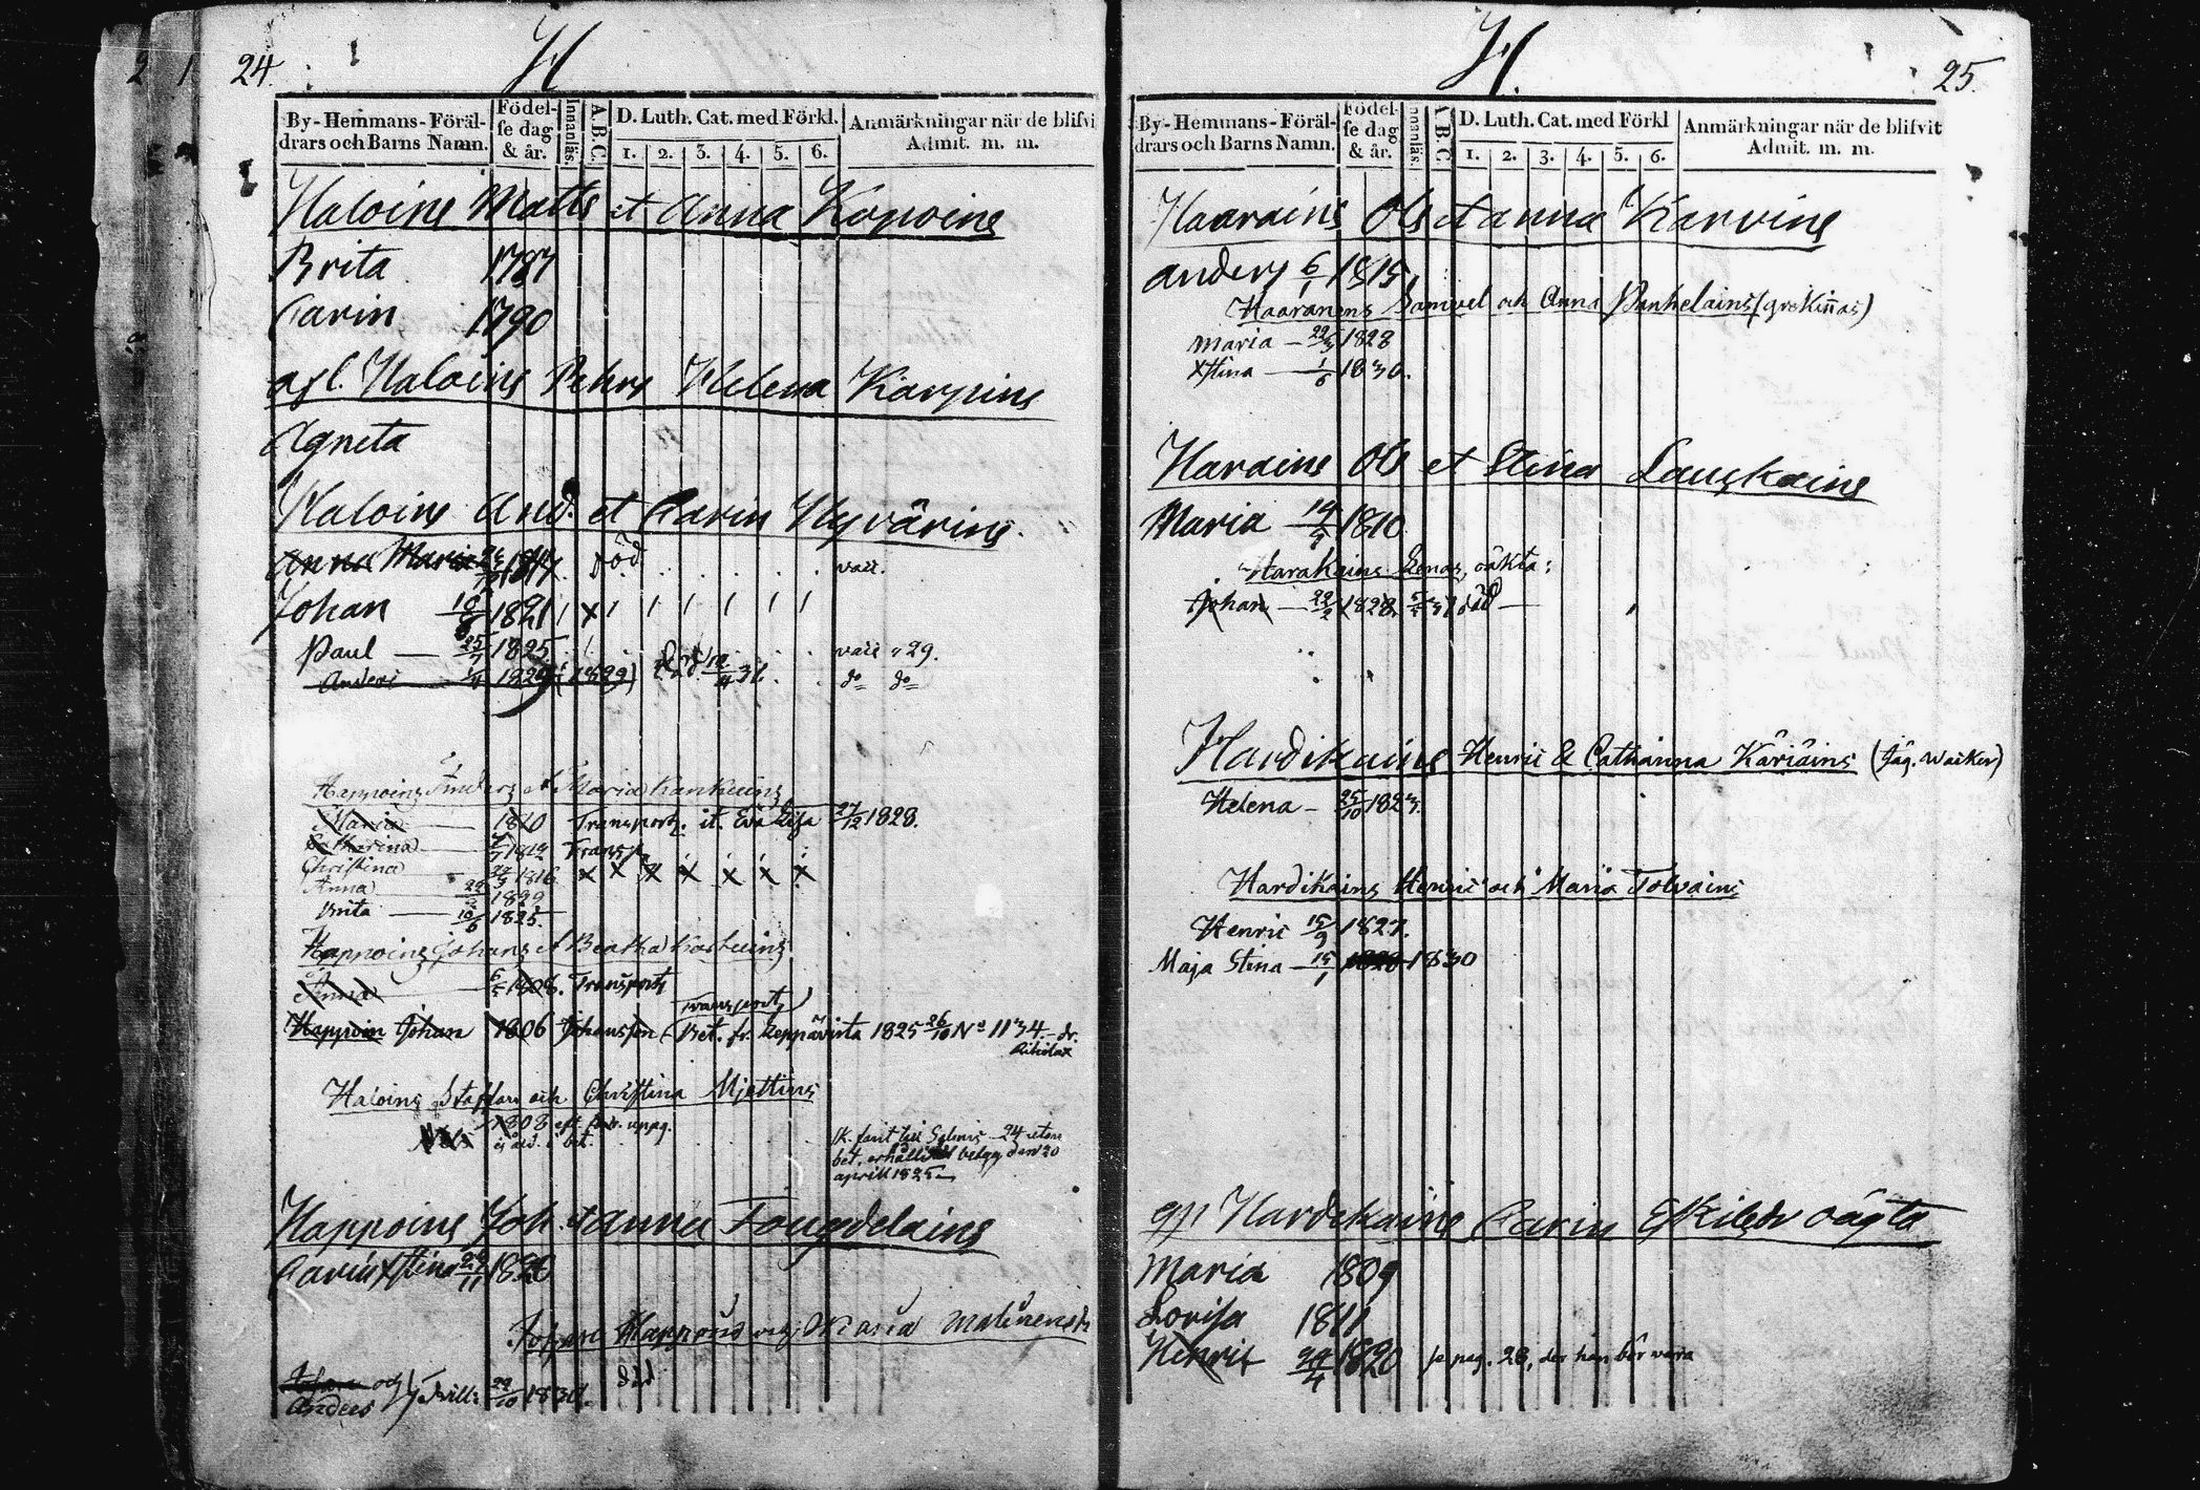 2 1 24.
H
By-Hemmans-Föräl-
drars och Barns Namn.
Födel-
se dag
& år.
Innanläs.
A.B.C.
D. Luth. Cat. med Förkl.
1. 2. 3. 4. 5. 6.
Anmärkningar när de blifvi
Admit. m. m.
Haloine Matts et Anna Kopoine
Brita 1787
Carin 1790
afl. Haloins Pehrs Helena Karpins
Agneta
Haloins And. et Carin Hyvärins.
Anna Maria 1817. Död vacc.
Johan 1821 / X / / / / / / /
Paul — 25/7 1825. / vacc. 29.
Anders 1829 (1829) död 12/4 31. do do
Happoins Anders et Maria Kankuins
Maria — 1810 Transport. it. Eva Lisa 27/12 1828.
Catharina — 1812 Transp.
Christina 1816 X X X X X X X
Anna 1822
Brita — 10/6 1825.
Happoins Johans et Beatha
Anna 6/5 1808. Transport
Transport
Happoin Johan 1806 Johansson (Bet. fr. Leppävirta 1825 26/10 No 1134.
Haloins Staffan och Christina Mjettins
1808 eft. uppg.
ej i bet.
24 utan
bet. den 20
aprill 1825
Happoins Joh. et Anna Tougdelains
Carin Xstina 29/11 1820
Johan Happoins och Maria
Johan och
Anders Tvill: 29/10 1830. död
H.
25.
By-Hemmans-Föräl-
drars och Barns Namn.
Födel-
se dag
& år.
Innanläs.
A.B.C
D. Luth. Cat. med Förkl
1. 2. 3. 4. 5. 6.
Anmärkningar när de blifvit
Admit. m. m.
Haarains Ols et Anna Karvins
Anders 6/1 1815
Haaranens Samuel och Anna Panhelains
Maria — 22/3 1828
Xstina — 1/6 1830.
Haraine Ols et Stina Lauskains
Maria 19/9 1810
Harakains oäkta:
Johan — 22/2 1828. död —
Hardikains Henric & Catharina Käriäins
Helena — 25/10 1823.
Hardikains Henric och Maria Tolvains
Henric 15/9 1827.
Maja Stina — 15/1 1828 1830
Hardikains Carin oägta
Maria 1809
Lovisa 1811
Henric 24/4 1820 se pag. 28, der han bör vara